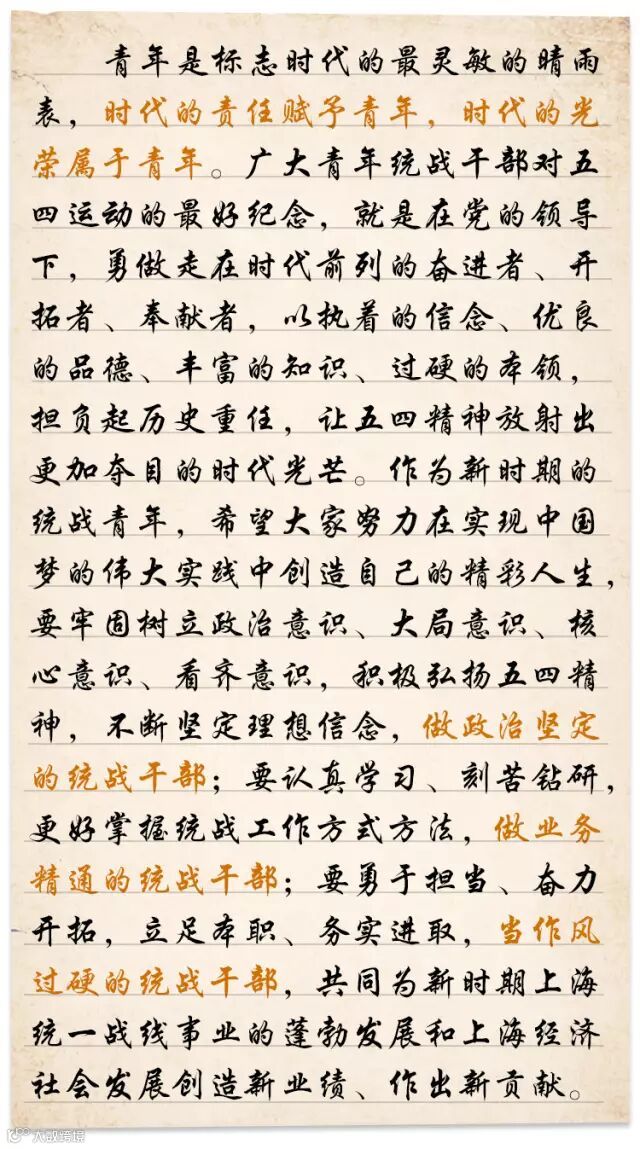 青年是标志时代的最灵敏的晴雨
表，时代的责任赋予青年，时代的光
荣属于青年。广大青年统战干部对五
四运动的最好纪念，就是在党的领导
下，勇做走在时代前列的奋进者、开
拓者、奉献者，以执着的信念、优良
的品德、丰富的知识、过硬的本领，
担负起历史重任，让五四精神放射出
更加夺目的时代光芒。作为新时期的
统战青年，希望大家努力在实现中国
梦的伟大实践中创造自己的精彩人生，
要牢固树立政治意识、大局意识、核
心意识、看齐意识，积极弘扬五四精
神，不断坚定理想信念，做政治坚定
的统战干部；要认真学习、刻苦钻研，
更好掌握统战工作方式方法，做业务
精通的统战干部；要勇于担当、奋力
开拓，立足本职、务实进取，当作风
过硬的统战干部，共同为新时期上海
统一战线事业的蓬勃发展和上海经济
社会发展创造新业绩、作出新贡献。
大数跨境